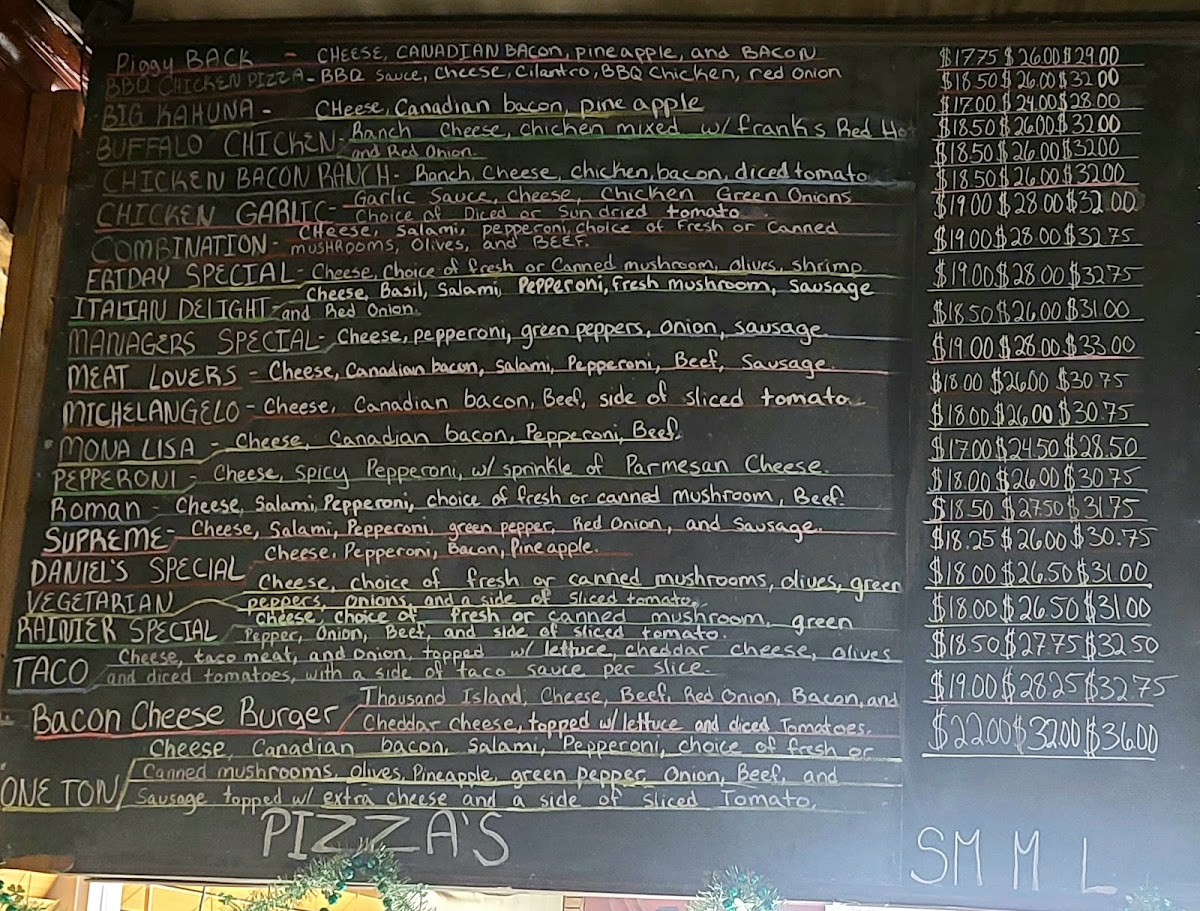 Piggy BACK - CHEESE, CANADIAN BACON, pineapple, and BACON $17.75 $26.00 $29.00
BBQ CHICKEN PIZZA - BBQ Sauce, Cheese, Cilantro, BBQ Chicken, red onion $18.50 $26.00 $32.00
BIG KAHUNA - CHeese, Canadian bacon, pineapple $17.00 $24.00 $28.00
BUFFALO CHICKEN - Ranch Cheese, chicken mixed w/ frank's Red Hot $18.50 $26.00 $32.00
and Red Onion.
CHICKEN BACON RANCH - Ranch, Cheese, chicken, bacon, diced tomato $18.50 $26.00 $32.00
CHICKEN GARLIC - Garlic Sauce, Cheese, Chicken Green Onions $18.50 $26.00 $32.00
Choice of Diced or Sundried tomato.
COMBINATION - CHeese, Salami, pepperoni, choice of Fresh or Canned $19.00 $28.00 $32.00
musHRooms, Olives, and BEEF.
FRIDAY SPECIAL - Cheese, Choice of fresh or Canned mushroom, olives, shrimp $19.00 $28.00 $32.75
ITALIAN DELIGHT - Cheese, Basil, Salami, Pepperoni, Fresh mushroom, Sausage $19.00 $28.00 $32.75
and Red Onion.
MANAGERS SPECIAL - Cheese, pepperoni, green peppers, onion, sausage $18.50 $26.00 $31.00
MEAT LOVERS - Cheese, Canadian bacon, salami, Pepperoni, Beef, Sausage. $19.00 $28.00 $33.00
MICHELANGELO - Cheese, Canadian bacon, Beef, side of sliced tomato. $18.00 $26.00 $30.75
MONA LISA - Cheese, Canadian bacon, Pepperoni, Beef. $18.00 $26.00 $30.75
PEPPERONI - Cheese, spicy Pepperoni, w/ sprinkle of Parmesan Cheese. $17.00 $24.50 $28.50
Roman - Cheese, Salami, Pepperoni, choice of fresh or canned mushroom, Beef. $18.00 $26.00 $30.75
SUPREME - Cheese, Salami, Pepperoni, green pepper, Red Onion, and Sausage. $18.50 $27.50 $31.75
DANIEL'S SPECIAL Cheese, Pepperoni, Bacon, Pineapple. $18.25 $26.00 $30.75
VEGETARIAN Cheese, choice of fresh or canned mushrooms, olives, green $18.00 $26.50 $31.00
peppers, onions, and a side of sliced tomato.
RAINIER SPECIAL Cheese, choice of fresh or canned mushroom, green $18.00 $26.50 $31.00
Pepper, Onion, Beef, and side of sliced tomato.
TACO Cheese, taco meat, and onion, topped w/ lettuce, cheddar cheese, olives $18.50 $27.75 $32.50
and diced tomatoes, with a side of taco sauce per slice.
Bacon Cheese Burger Thousand Island, Cheese, Beef, Red Onion, Bacon, and $19.00 $28.25 $32.75
Cheddar cheese, topped w/ lettuce and diced Tomatoes.
ONE TON Cheese, Canadian bacon, Salami, Pepperoni, choice of fresh or $22.00 $32.00 $36.00
Canned mushrooms, olives, Pineapple, green pepper, Onion, Beef, and
Sausage topped w/ extra cheese and a side of sliced Tomato.
PIZZA'S SM M L